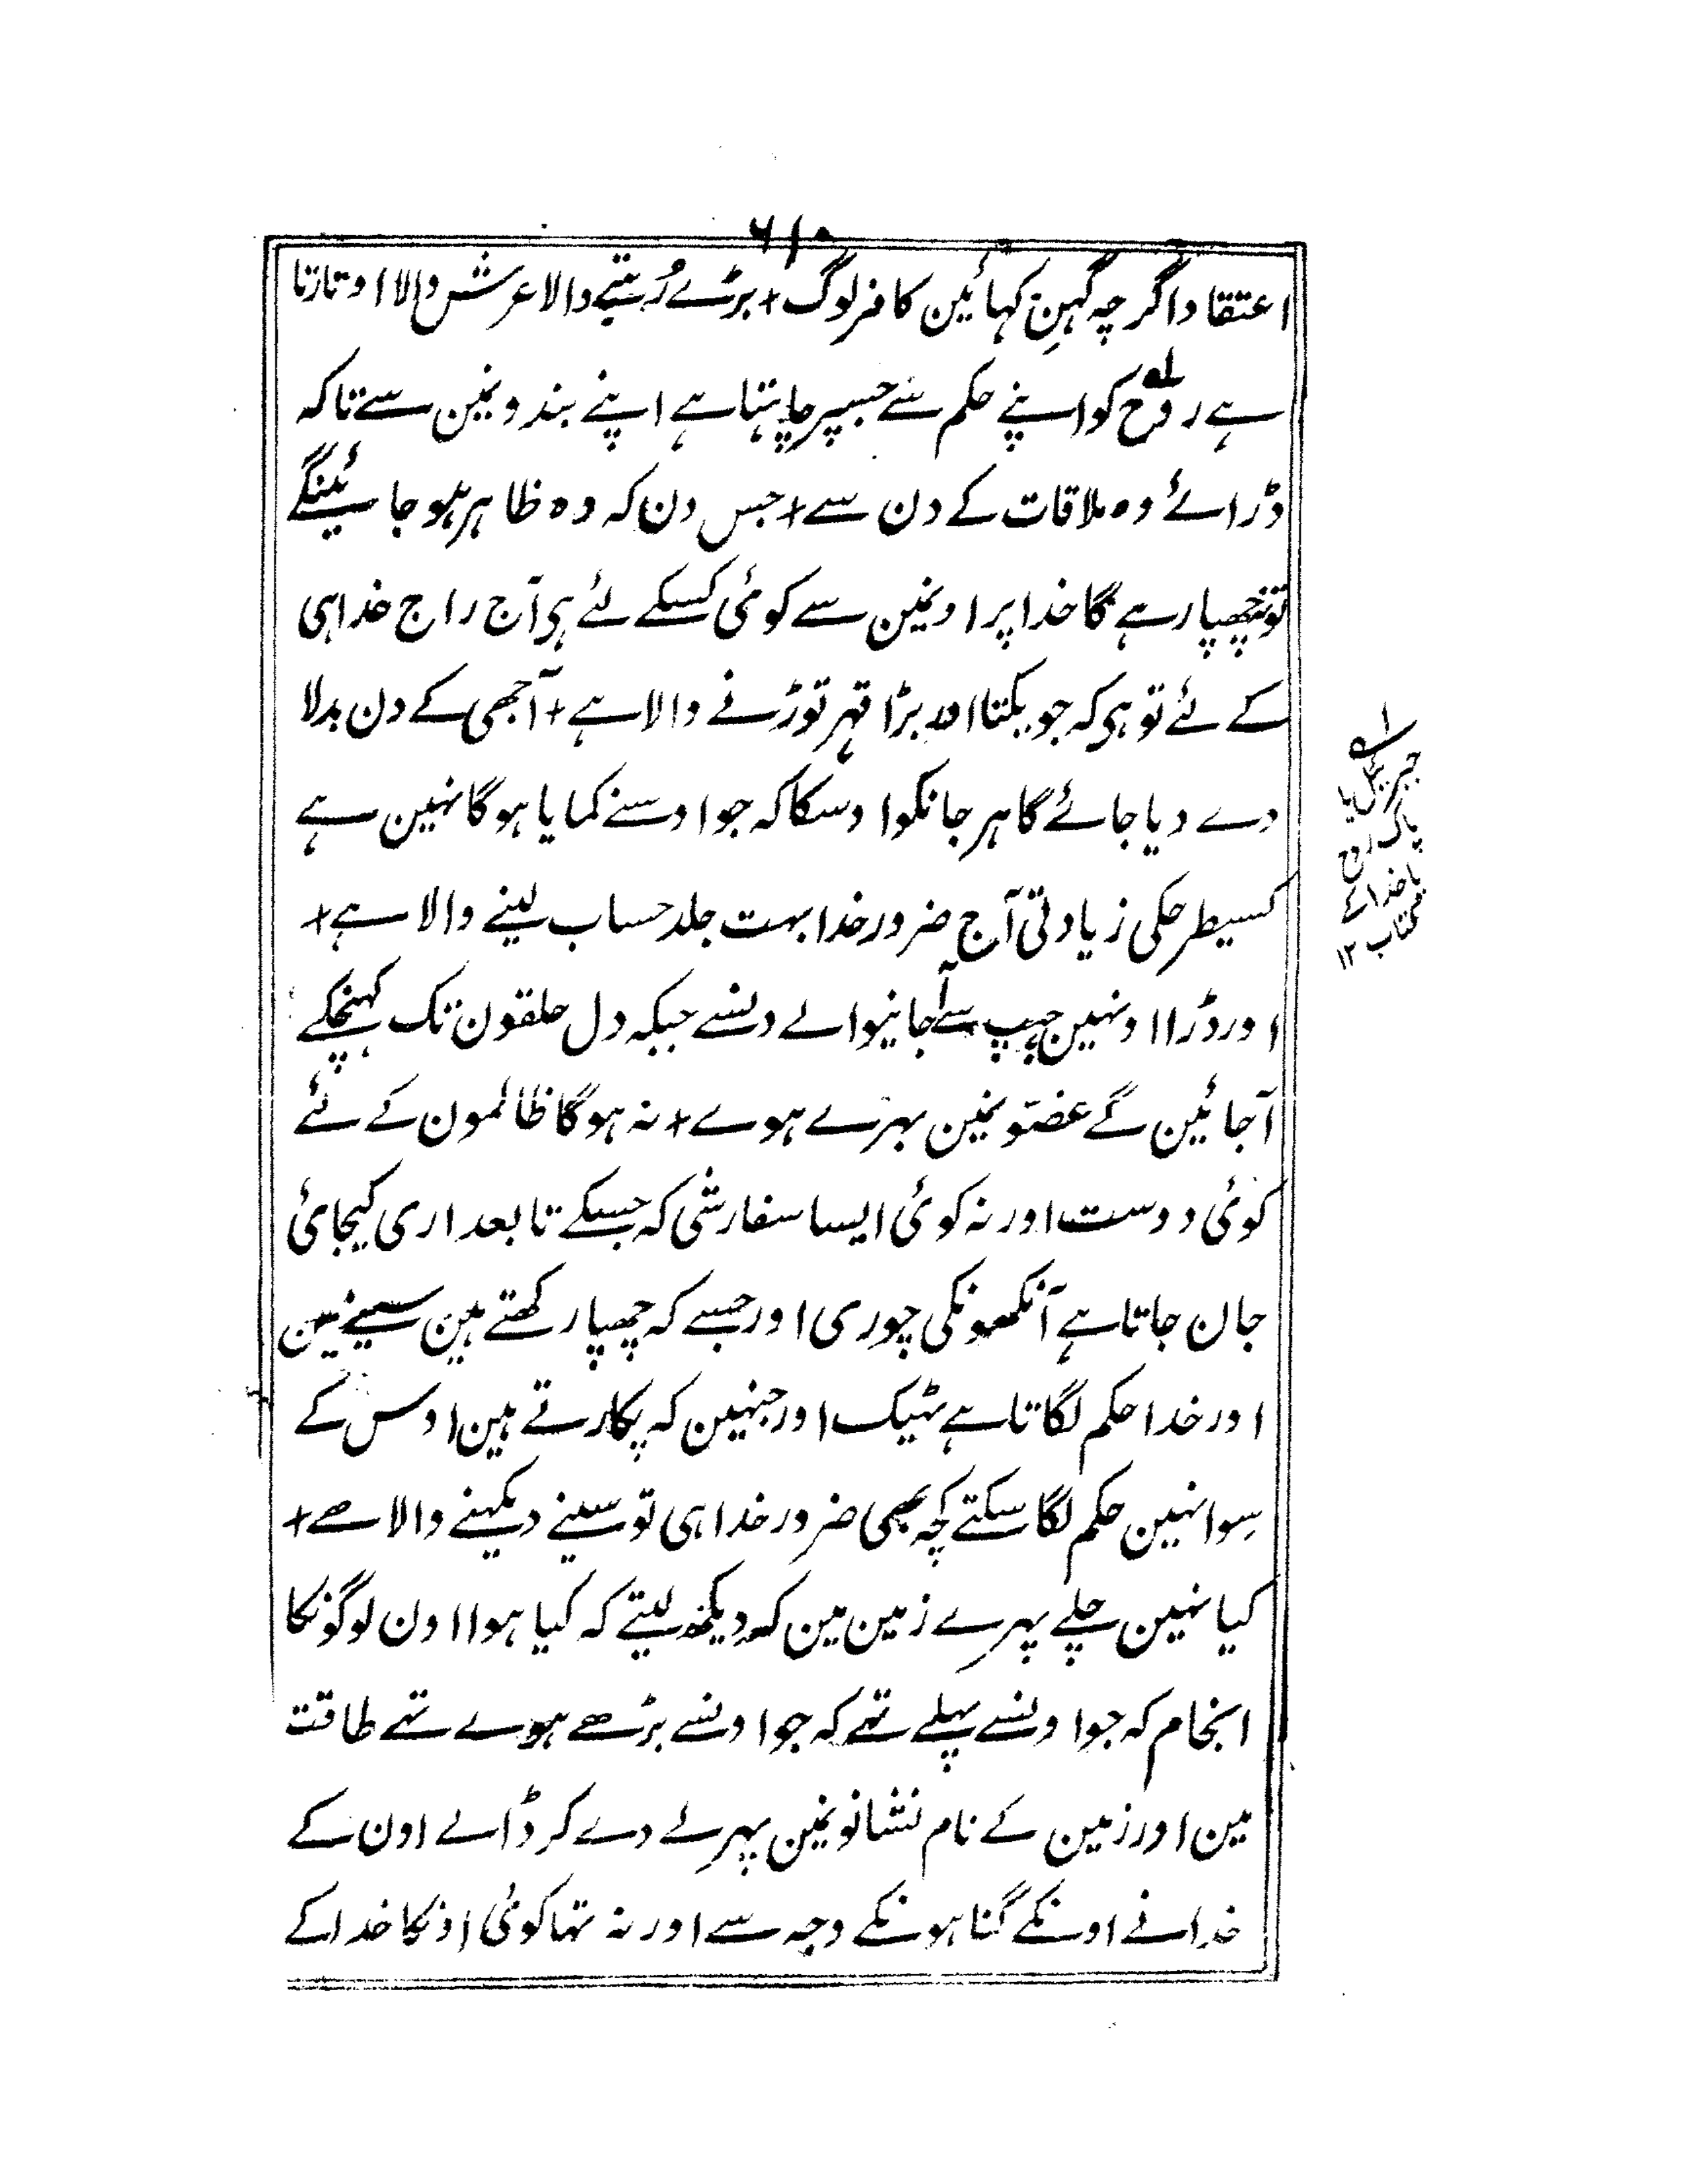 ۶۱۰
اعتقاد اگرچہ گہن کہائین کافر لوگ + بڑے رُتبے والا عرش والا اوتارتا
ہے روح کو اپنے حکم سے جسپر چاہتا ہے اپنے بندونمین سے تاکہ
ڈرائے وہ ملاقات کے دن سے + جس دن کہ وہ ظاہر ہو جائینگے
تو نچھپا رہے گا خدا پر اونمین سے کوئی کسکے لئے ہی آج راج خدا ہی
کے لئے تو ہی کہ جو یکتا اور بڑا قہر توڑنے والا ہے + آجھی کے دن بدلا
دے دیا جائے گا ہر جانکو اوسکا کہ جو اوسنے کمایا ہوگا نہین ہے
کسیطرحکی زیادتی آج ضرور خدا بہت جلد حساب لینے والا ہے +
اور ڈرا اونہین جہپ سے آجانیوالے دنسے جبکہ دل حلقون تک کہنچکے
آجائین گے غصّونمین بہرے ہوے + نہ ہوگا ظالمون کے لئے
کوئی دوست اور نہ کوئی ایسا سفارشی کہ جسکے تابعداری کیجائ
جان جاتا ہے آنکھونکی چوری اور جسے کہ چھپا رکھتے ہین سینے مین
اور خدا حکم لگاتا ہے ٹہیک اور جنہین کہ پکارتے ہین اوس کے
سِوا نہین حکم لگا سکتے کچہ بھی ضرور خدا ہی تو سننے دیکہنے والا ہے +
کیا نہین چلے پہرے زمین مین کہ دیکھ لیتے کہ کیا ہوا اون لوگونکا
انجام کہ جو اونسے پہلے تہے کہ جو اونسے بڑھے ہوے تہے طاقت
مین اور زمین کے نام نشانونمین پہرلے دے کر ڈالے اون کے
خدا نے اونکے گناہونکے وجہ سے اور نہ تہا کوئی اونکا خدا کے
۱؎
جبرئیل یا
پاک روح
یا خدا کے
کتاب ۱۲